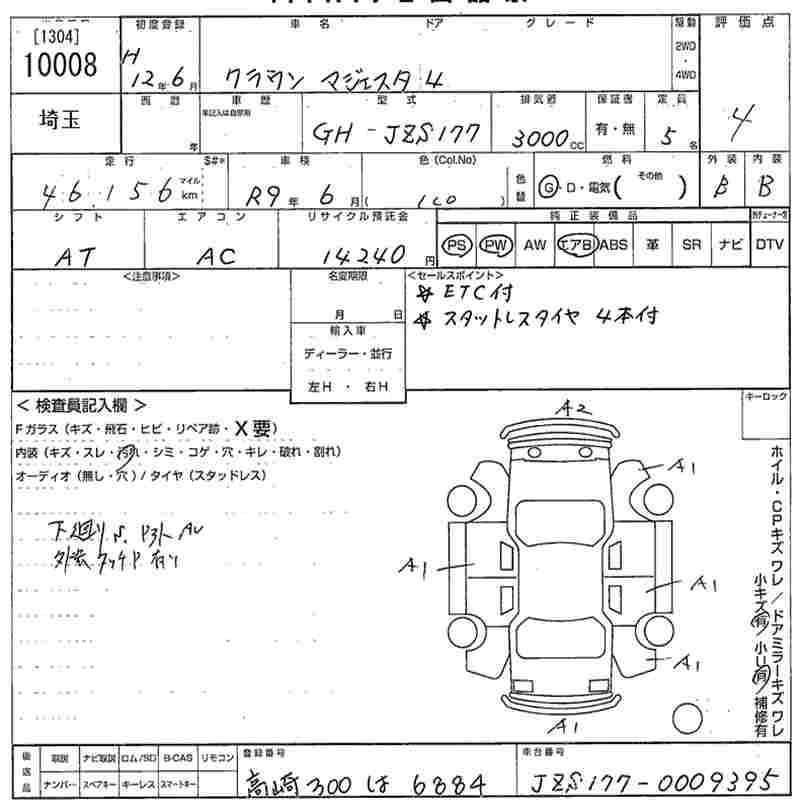 [1304]
10008
埼玉
初度登録
H 12年6月
車名 ドア グレード
クラウン マジェスタ 4
駆動
2WD
・
4WD
評価点
4
年
車歴
未記入は自家用
型式
GH-JZS177
排気量
3000cc
保証書
有・無
定員
5名
走行 S#*
46,156 マイル km
車検
R9年 6月
色(Col.No)
( 1C0 )
色替
燃料
G・D・電気( その他 )
外装
B
内装
B
シフト
AT
エアコン
AC
リサイクル預託金
14240円
純正装備品
PS PW AW エアB ABS 革 SR ナビ DTV
<注意事項>
名変期限
月 日
輸入車
ディーラー・並行
左H ・ 右H
<セールスポイント>
☆ ETC付
☆ スタットレスタイヤ 4本付
キーロック
< 検査員記入欄 >
Fガラス(キズ・飛石・ヒビ・リペア跡・X要)
内装(キズ・スレ・汚れ・シミ・コゲ・穴・キレ・破れ・割れ)
オーディオ(無し・穴)/タイヤ(スタッドレス)
下廻り
外装 タッチP 有り
A2
A1
A1
A1
A1
A1
ホイル・CPキズ ワレ/ドアミラーキズ ワレ
小キズ有 小U有 補修有
後送品
取説 ナビ取説 ロム/SD B-CAS リモコン
ナンバー スペアキー キーレス スマートキー
登録番号
高崎 300 は 6884
車台番号
JZS177-0009395